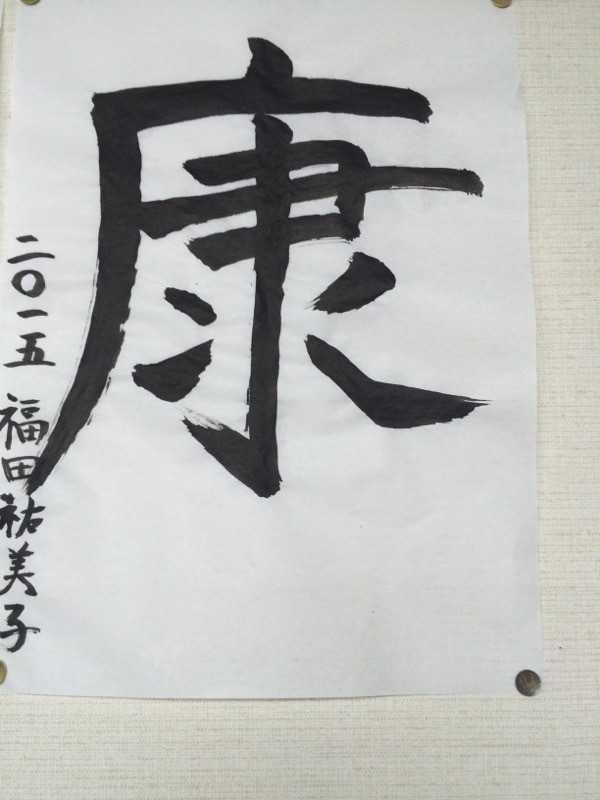 康
二〇一五 福田祐美子